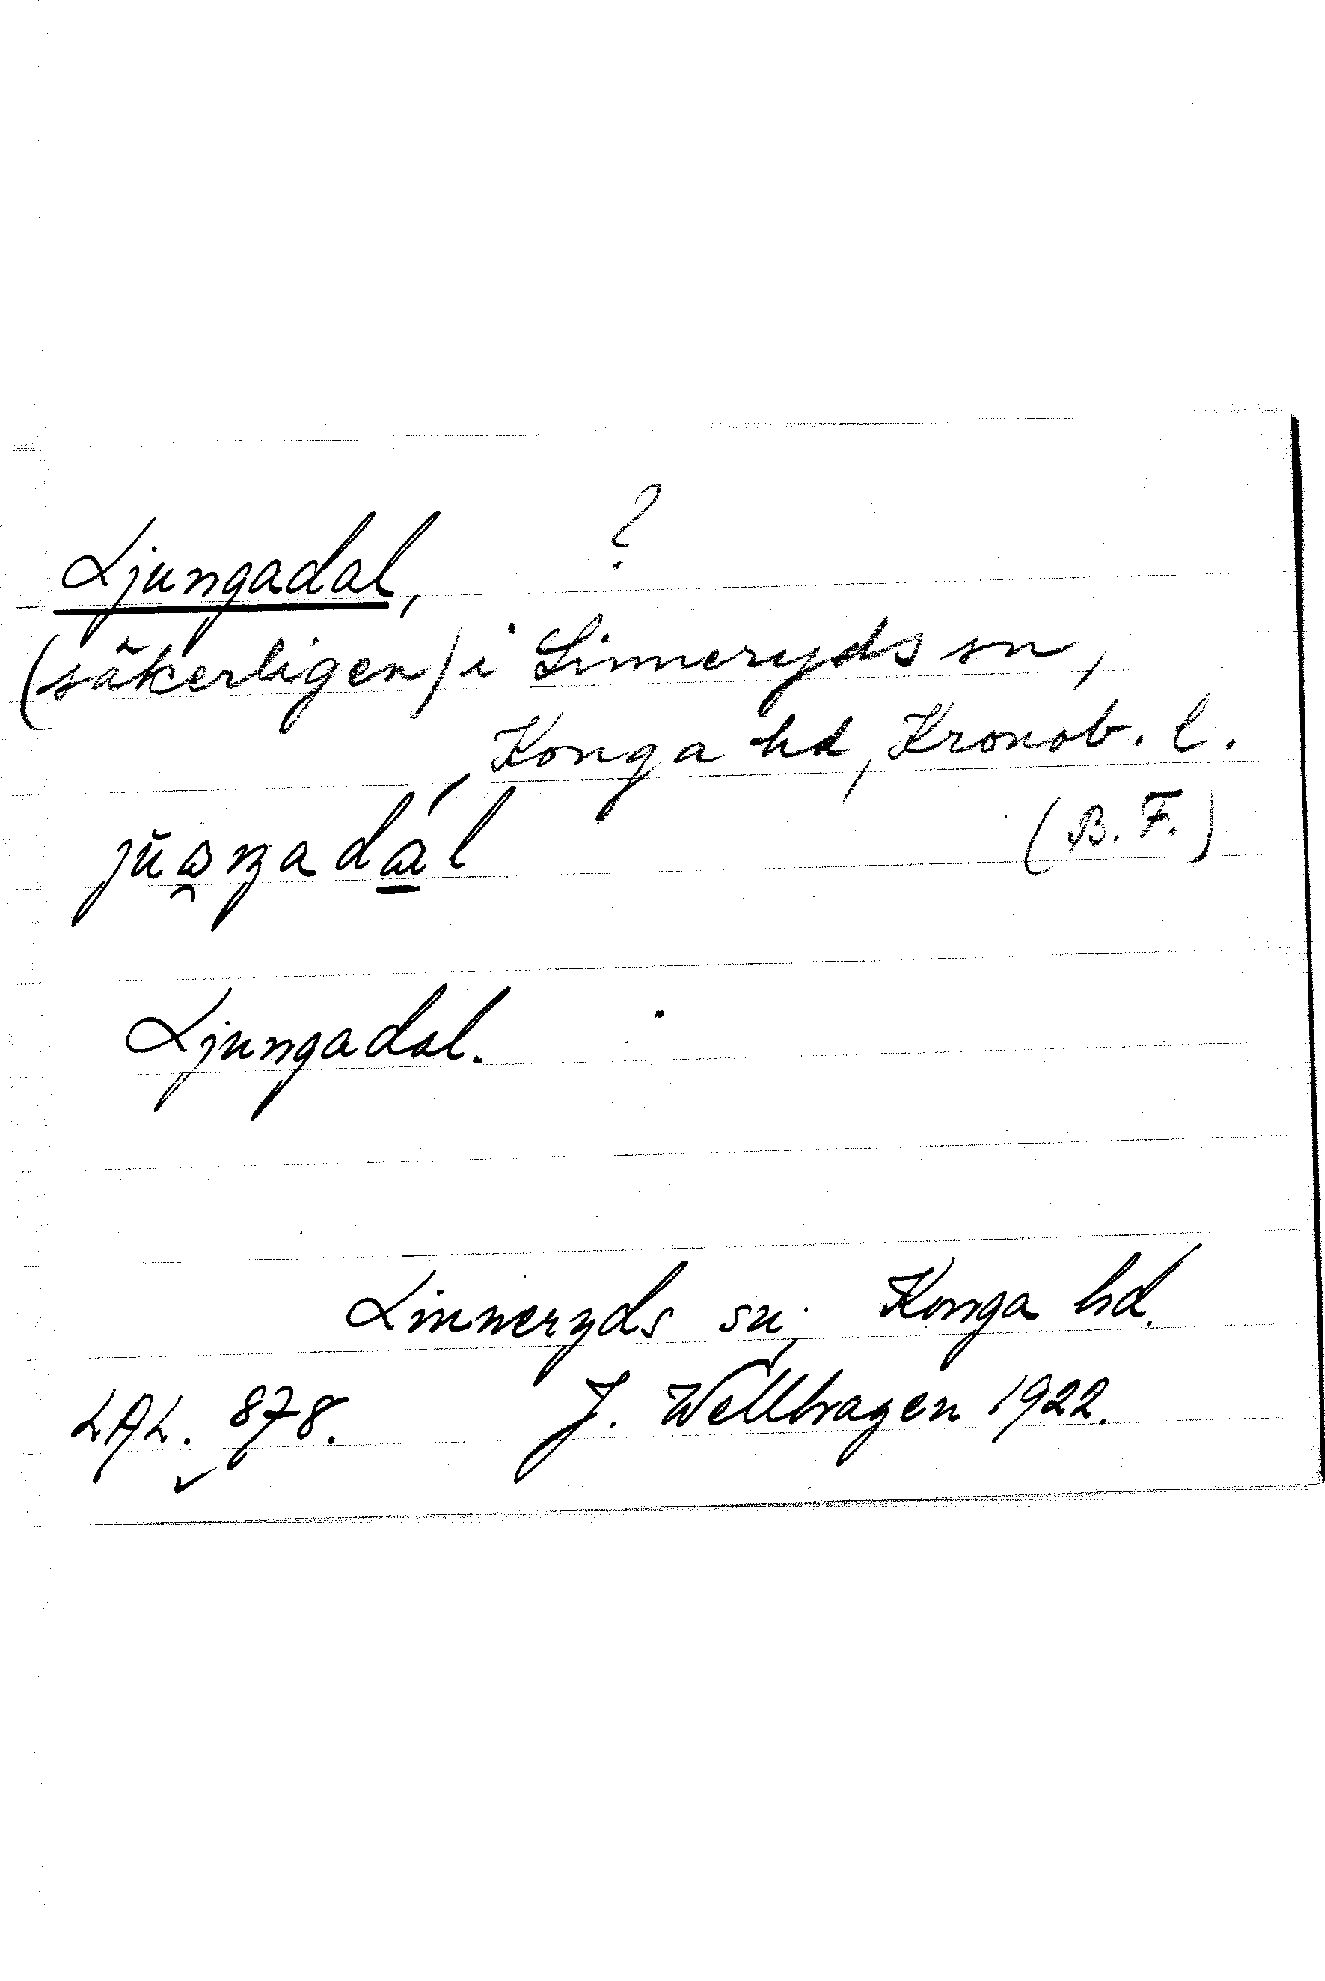 ?
Ljungadal,
(säkerligen) i Linneryds sn,
Konga hd, Kronob. l.
(B. F.)
Ljungadal.
Linneryds sn; Konga hd.
LAL. 878. J. Wellhagen 1922.